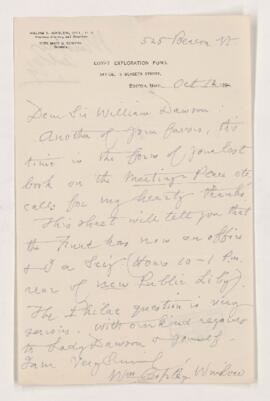 525 Beacon St
EGYPT EXPLORATION FUND.
BOSTON, MASS., Oct
Dear Sir William Dawson:
Another of your favors, this
time in the form of your last
book on the Meeting Place etc
calls for my hearty thanks.
This sheet will tell you that
the Fund has now an office
& a Sec'y (Hours 10-1 P.M.
rear of new Public Liby).
The Philae question is very
serious. With our kind regards
to Lady Dawson & yourself.
I am Very
Wm Copley Winslow